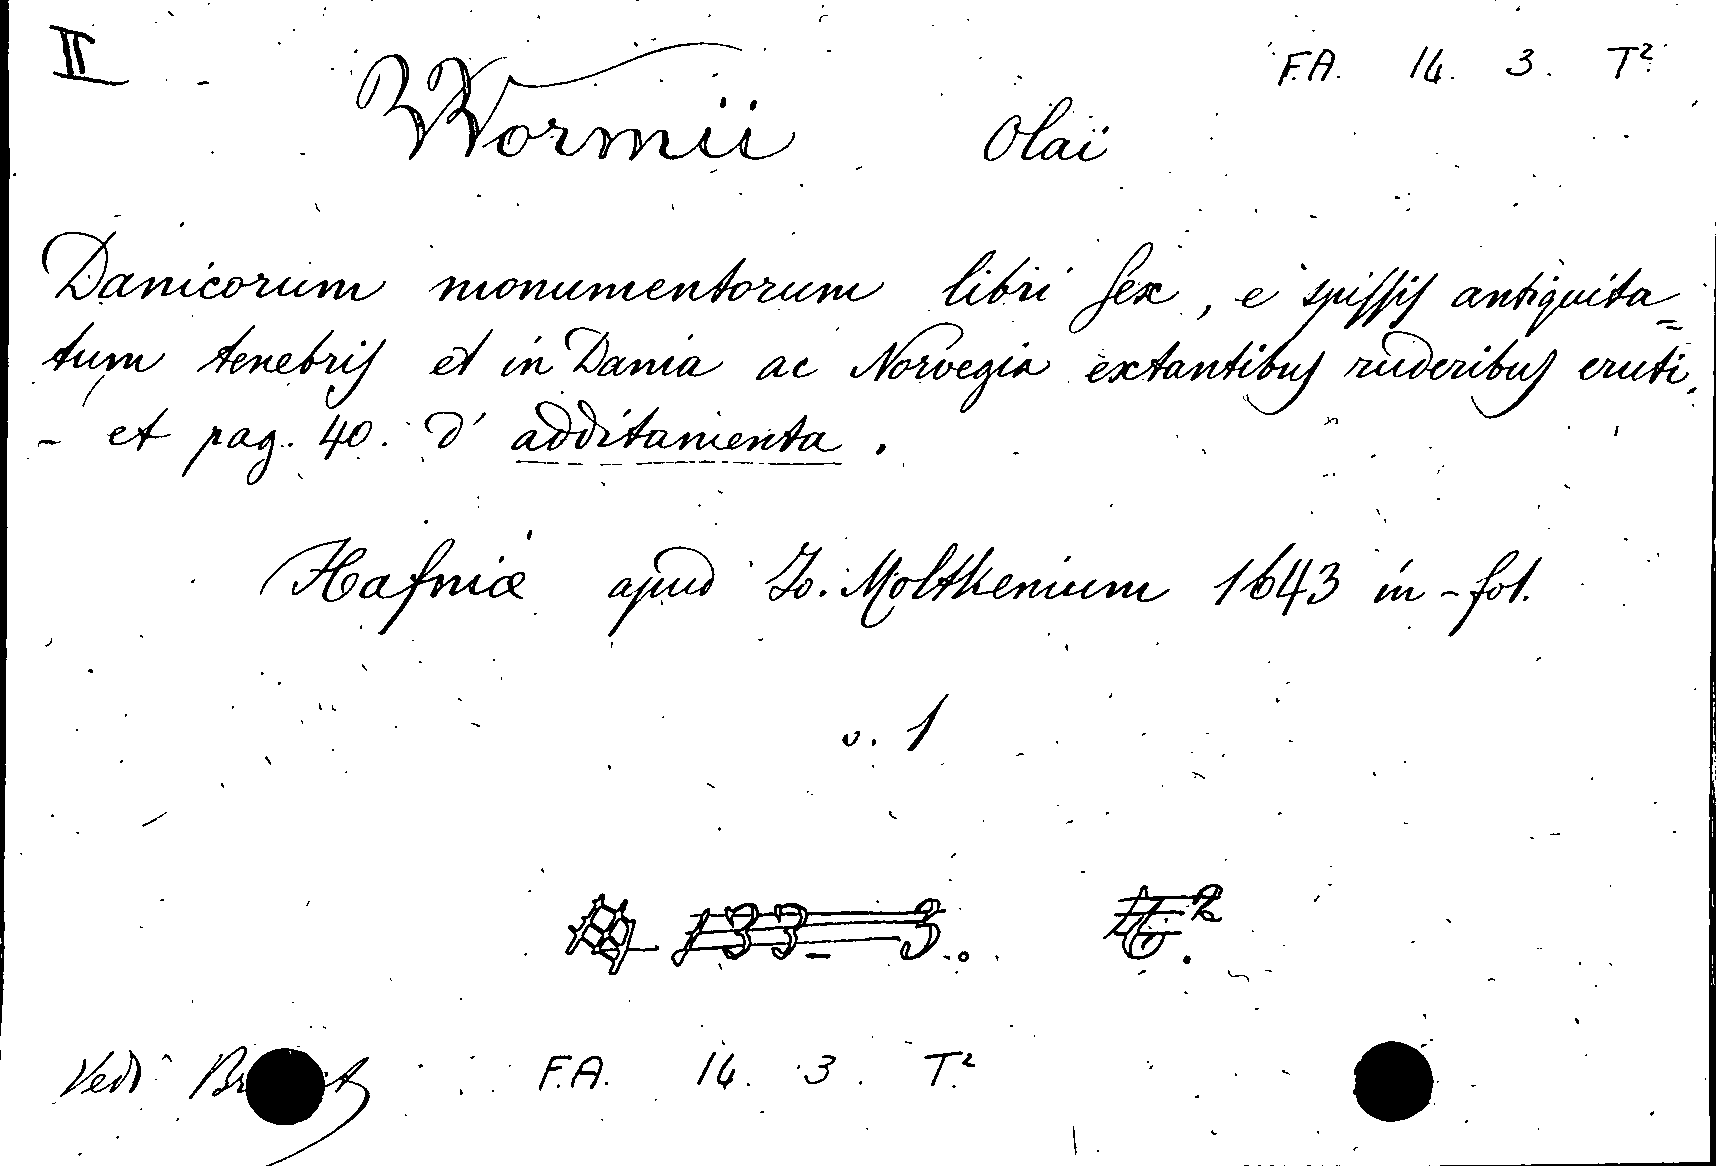 II F.A. 14. 3. T²
Wormii Olai
Danicorum monumentorum libri sex, e spissis antiquita=
tum tenebris et in Dania ac Norvegia extantibus ruderibus eruti.
- et pag. 40. d' additamenta.
Hafniæ apud Jo. Moltkenium 1643 in-fol.
v. 1
133 3.
Vedi F.A. 14. 3. T²